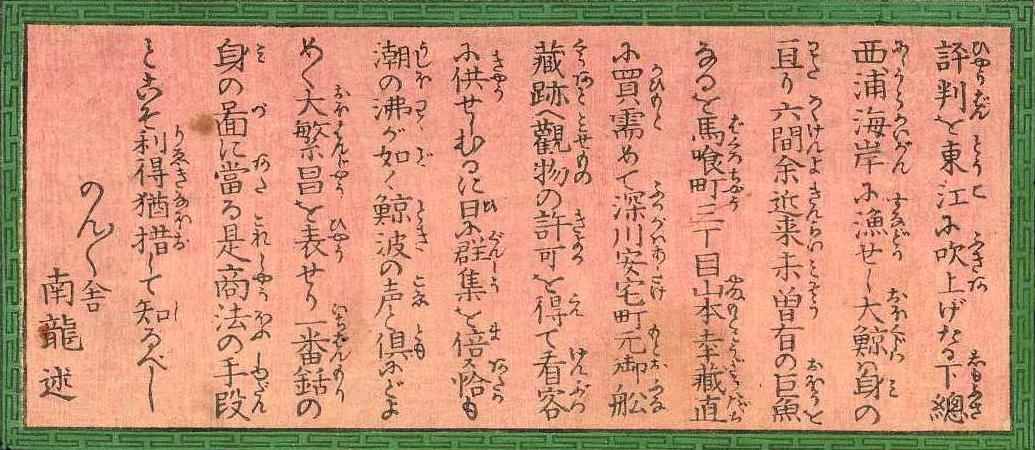 評判を東江に吹上げたる下總
西浦海岸に漁せし大鯨の身の
亘り六間余近来未曽有の巨魚
なるを馬喰町三丁目山本幸藏直
に買需めて深川安宅町元御舩
藏跡へ觀物の許可を得て看客
に供せしむるに日に群集を倍し恰も
潮の沸が如く鯨波の声と倶にどよ
めく大繁昌を表せり一番銛の
身の圖に當る是商法の手段
とこそ利得猶措して知るべし
のん〳〵舎
南龍 述